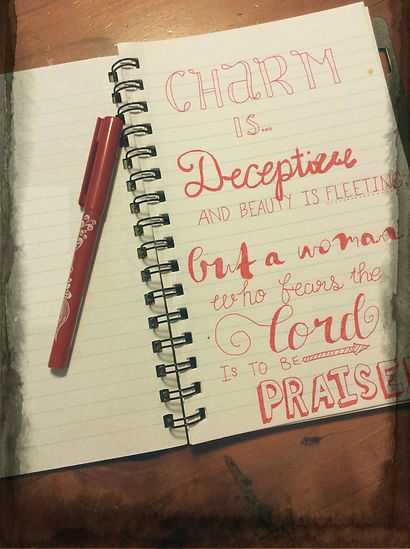 CHARM
IS...
Deceptive
AND BEAUTY IS FLEETING.
but a woman
who fears the
Lord
IS TO BE
PRAISE